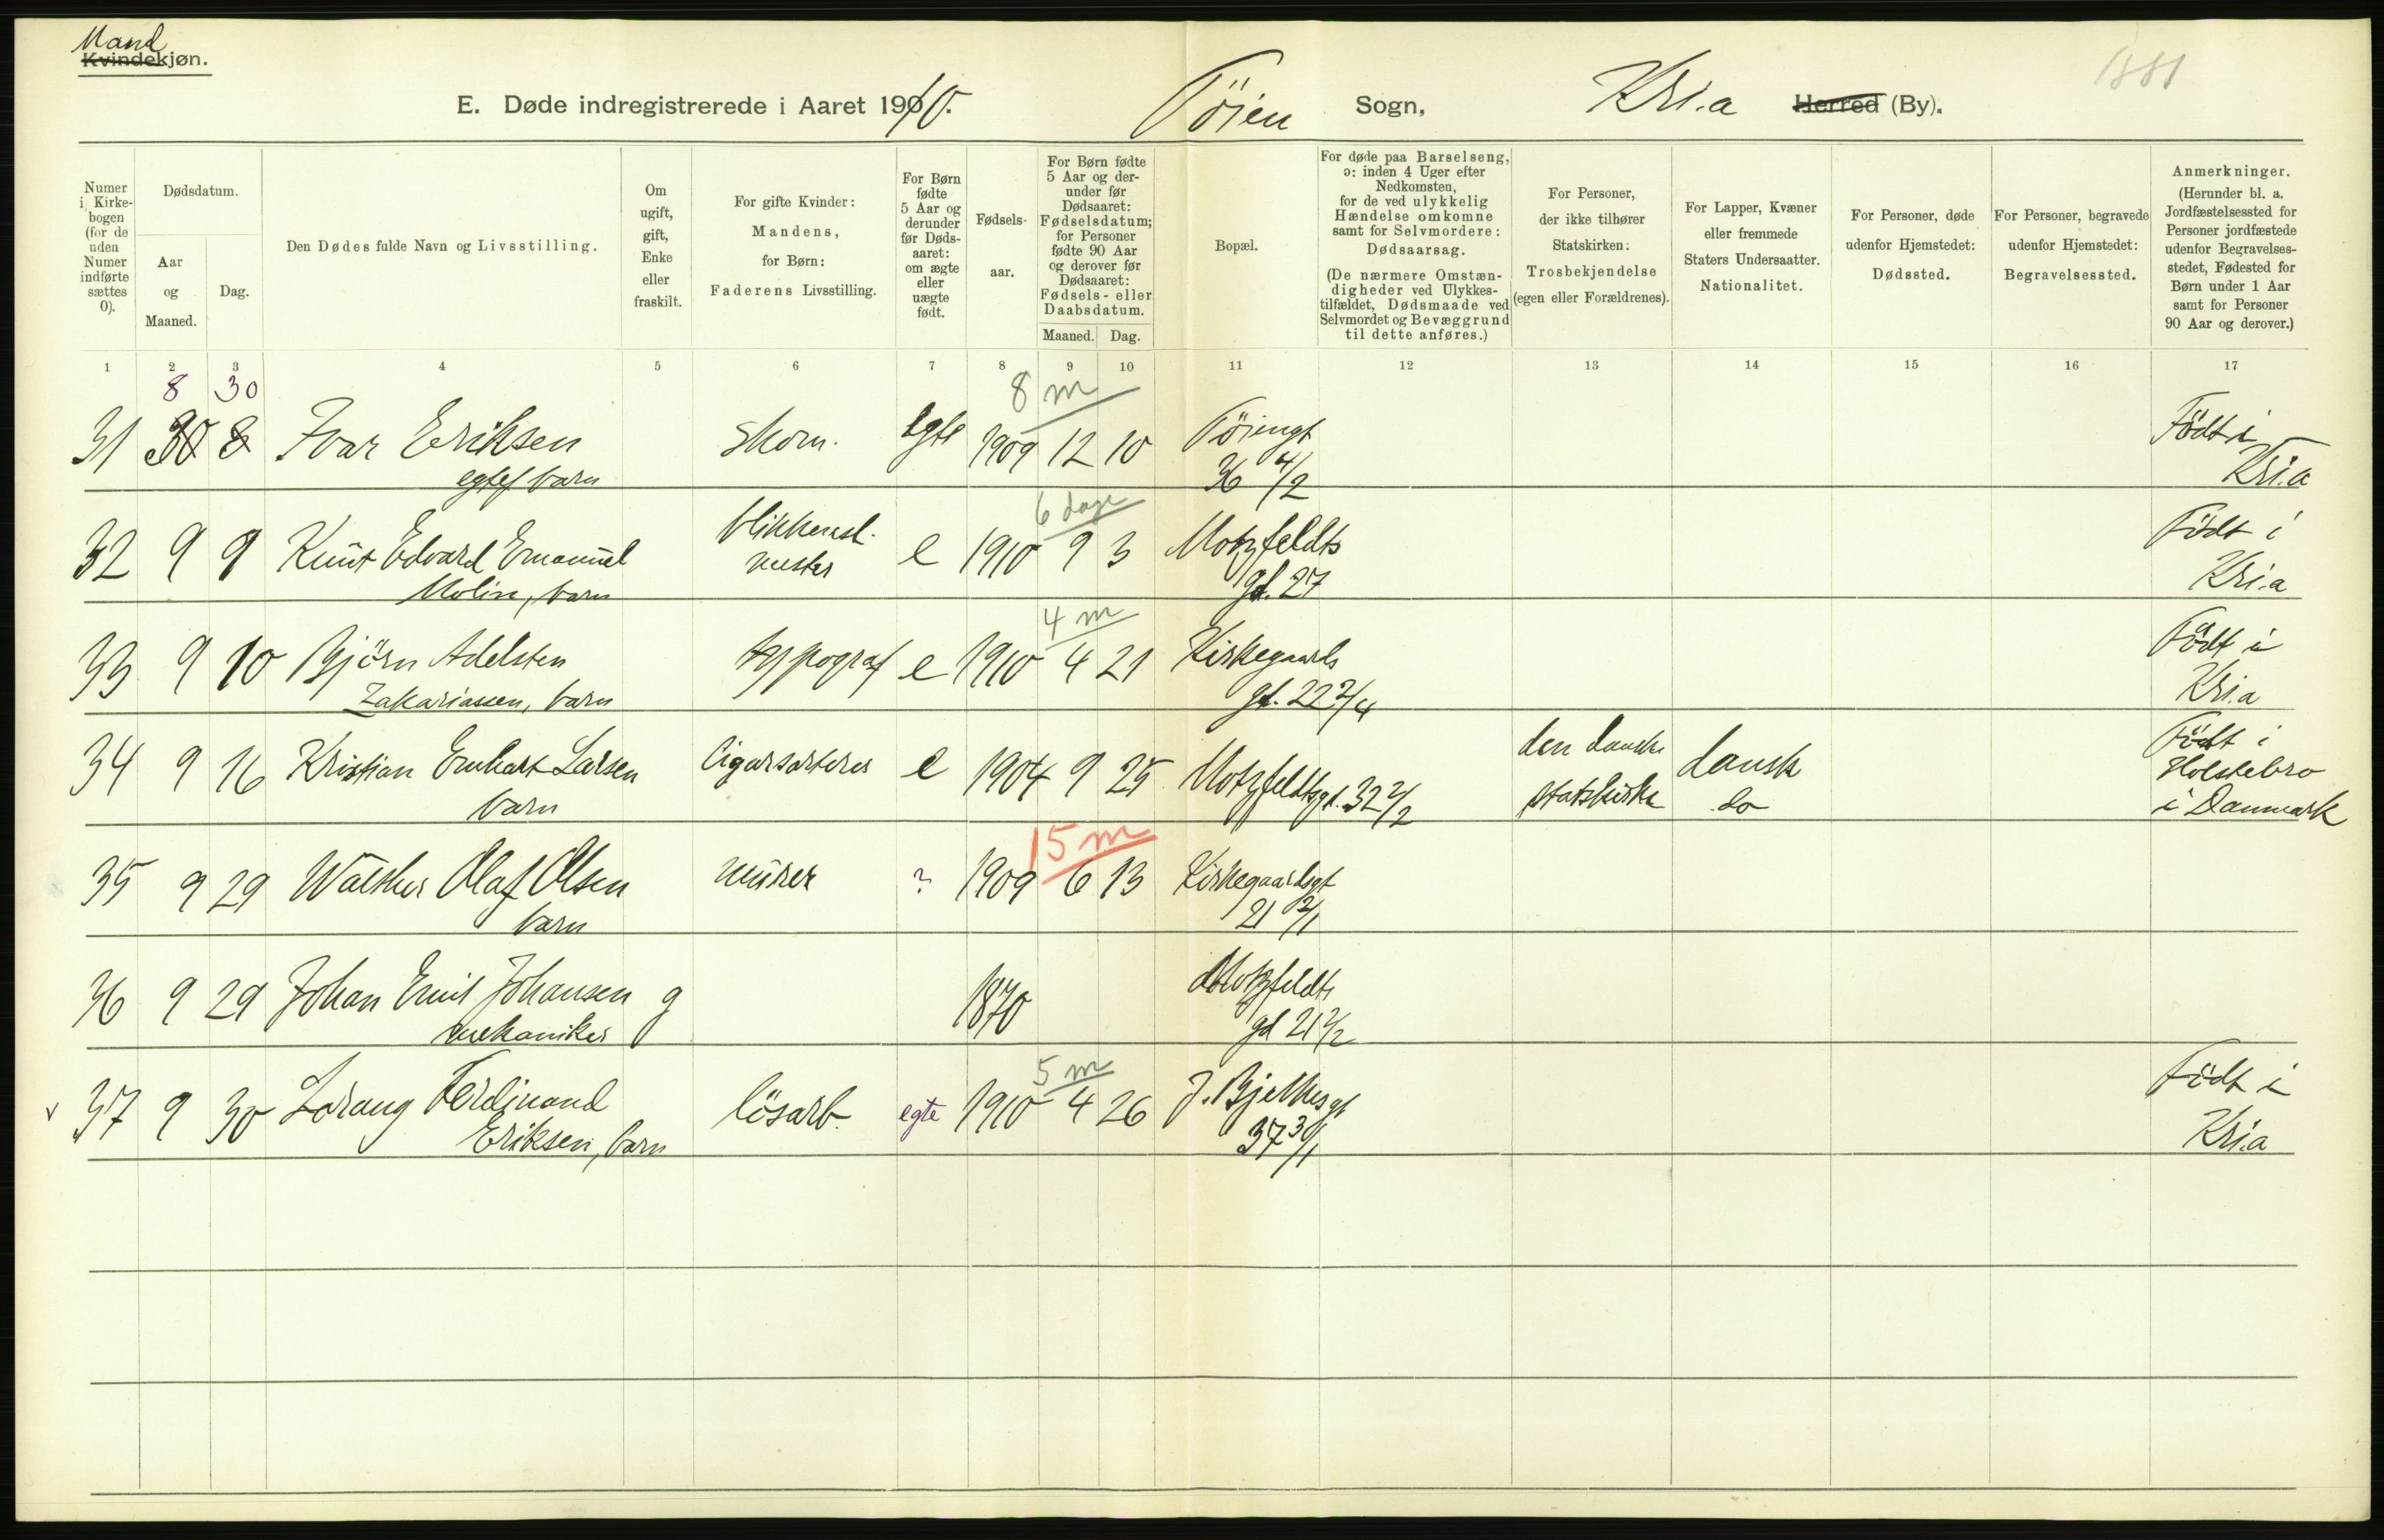 Mand
Kvindekjøn.
1881
E. Døde indregistrerede i Aaret 1910. Töien Sogn, Kri.a Herred (By).
Numer i Kirkebogen (for de uden Numer indførte sættes 0).
Dødsdatum.
Aar og Maaned.
Dag.
Den Dødes fulde Navn og Livsstilling.
Om ugift, gift, Enke eller fraskilt.
For gifte Kvinder: Mandens, for Børn: Faderens Livsstilling.
For Børn fødte 5 Aar og derunder før Dødsaaret: om ægte eller uægte født.
Fødselsaar.
For Børn fødte 5 Aar og derunder før Dødsaaret: Fødselsdatum; for Personer fødte 90 Aar og derover før Dødsaaret: Fødsels- eller Daabsdatum.
Maaned. Dag.
Bopæl.
For døde paa Barselseng, ɔ: inden 4 Uger efter Nedkomsten, for de ved ulykkelig Hændelse omkomne samt for Selvmordere: Dødsaarsag.
(De nærmere Omstændigheder ved Ulykkestilfældet, Dødsmaade ved Selvmordet og Bevæggrund til dette anføres.)
For Personer, der ikke tilhører Statskirken: Trosbekjendelse (egen eller Forældrenes).
For Lapper, Kvæner eller fremmede Staters Undersaatter. Nationalitet.
For Personer, døde udenfor Hjemstedet: Dødssted.
For Personer, begravede udenfor Hjemstedet: Begravelsessted.
Anmerkninger.
(Herunder bl. a. Jordfæstelsessted for Personer jordfæstede udenfor Begravelsesstedet, Fødested for Børn under 1 Aar samt for Personer 90 Aar og derover.)
1 2 3 4 5 6 7 8 9 10 11 12 13 14 15 16 17
8 30 8 m
31 30 8 Ivar Eriksen skom. Egte 1909 12 10 Töiengt Födt i
barn 36 4/2 Kri.a
6 dage
32 9 9 Knut Edvard Emanuel blikkensl. e 1910 9 3 Motzfeldts Födt i
Molin, barn mester gt. 27 Kri.a
4 m
33 9 10 Björn Adelsten typograf e 1910 4 21 Kirkegaards Födt i
Zakariassen, barn gt. 22 2/4 Kri.a
34 9 16 Kristian Emhart Larsen Cigarsorterer e 1904 9 25 Motzfeldtsgt. 32 2/2 den danske dansk Födt i
barn statskirke do Holstebro
i Danmark
15 m
35 9 29 Walther Olaf Olsen murer ? 1909 6 13 Kirkegaardsgt
barn 21 2/1
36 9 29 Johan Emil Johansen g 1870 Motzfeldts
mekaniker gt 21 2/2
5 m
v 37 9 30 Lorang Ferdinand lösarb. egte 1910 4 26 J. Bjelkesgt Födt i
Eriksen, barn 37 3/1 Kri.a